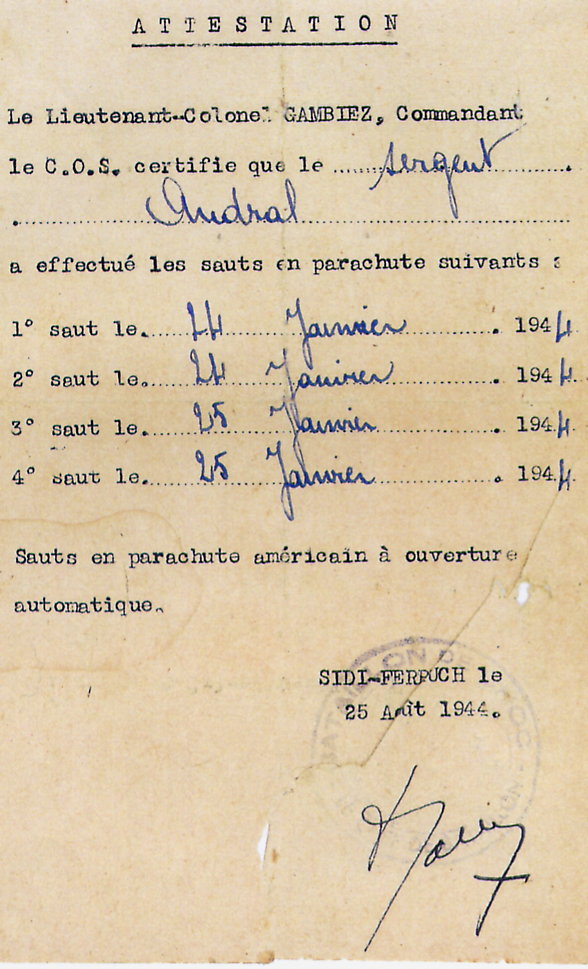 ATTESTATION
Le Lieutenant-Colonel GAMBIEZ, Commandant
le C.O.S. certifie que le ........ sergent ........
........ Andral ........
a effectué les sauts en parachute suivants :
1° saut le. 24 Janvier . 1944
2° saut le. 24 Janvier . 1944
3° saut le. 25 Janvier . 1944
4° saut le. 25 Janvier . 1944
Sauts en parachute américain à ouverture
automatique.
SIDI-FERRUCH le
25 Août 1944.